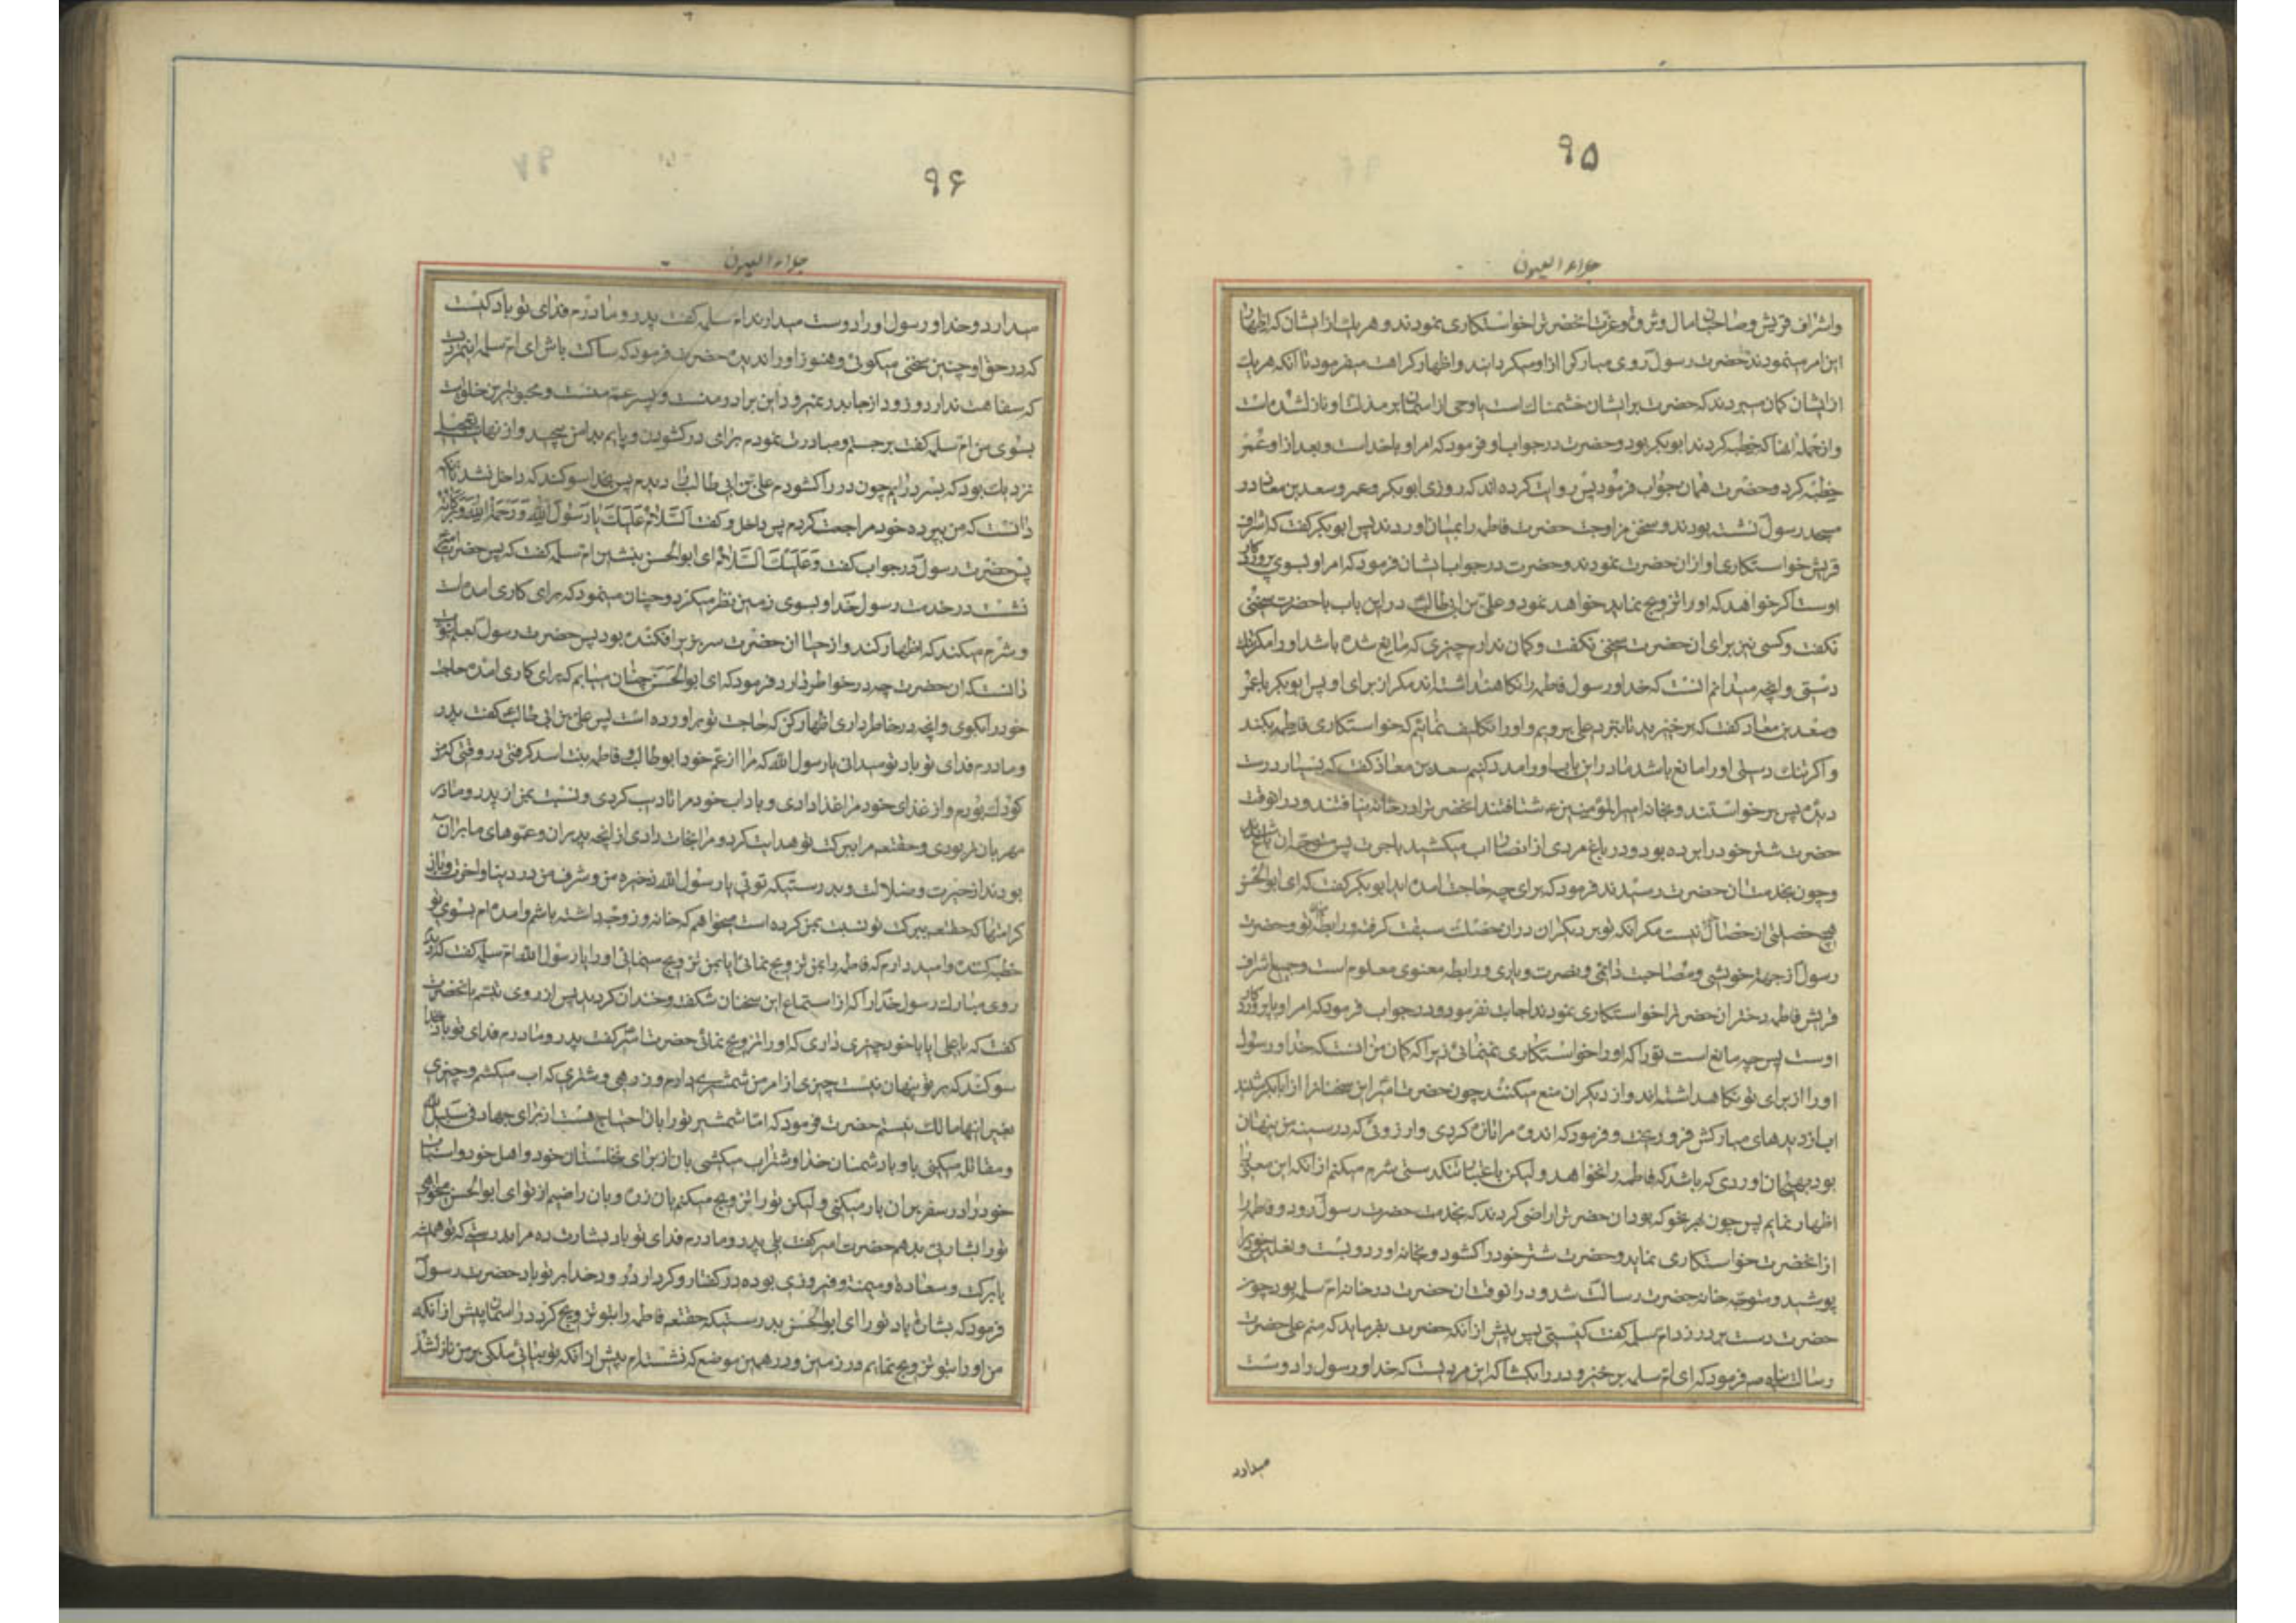 ۹۵
جلاء العیون
واشراف قریش وصاحبان مال وثروت وعزت انحضرترا خواستکاری نمودند وهر یك از ایشان که اظهار
این امر مینمودند حضرت رسول روی مبارکرا ازاو میکردانید واظهار کراهت میفرمود تا انکه هر یك
از ایشان کمان میبردند که حضرت بر ایشان خشمناك است یا وحی از اسمان بر مذمت او نازل شده است
واز جمله انها که خطبه کردند ابو بکر بود وحضرت در جواب او فرمود که امر او باخداست وبعد ازاو عمر
خطبه کرد وحضرت همان جواب فرمود پس روایت کرده اند که روزی ابوبکر وعمر وسعد بن معاذ در
مسجد رسول نشسته بودند وسخن مزاوجت حضرت فاطمه را بمیان اوردند پس ابوبکر کفت که اشراف
قریش خواستکاری او ازان حضرت نمودند وحضرت در جواب ایشان فرمود که امر او بسوی پروردکار
اوست اکر خواهد که او را تزویج نماید خواهد نمود وعلی بن ابی طالب در این باب با حضرت سخنی
نکفت وکسی نیز برای ان حضرت سخنی نکفت وکمان ندارم چیزی که مانع شده باشد او را مکر تنك
دستی وانچه میدانم انست که خدا ورسول فاطمه را نکاهنداشته اند مکر از برای او پس ابوبکر با عمر
وسعد بن معاذ کفت که برخیزید تا بنزد علی برویم واورا تکلیف نمائیم که خواستکاری فاطمه بکند
واکر تنك دستی اورا مانع باشد ما در این باب اورا مدد کنیم سعد بن معاذ کفت که بسیار درست
دیدهٔ پس برخواستند وبخانه امیرالمؤمنین ع شتافتند انحضرترا در خانه نیافتند ودر انوقت
حضرت شتر خود را برده بود ودر باغ مردی از انصار اب میکشید باجرت پس متوجه ان باغ شدند
وچون بخدمت ان حضرت رسیدند فرمود که برای چه حاجت امده اید ابوبکر کفت که ای ابوالحسن
هیچ خصلتی از خصال خیر نیست مکر انکه تو بر دیکران دران خصلت سبقت کرفته ورابطه میان تو وحضرت
رسول از جهة خویشی ومصاحبت دائمی ونصرت ویاری ورابطه معنوی معلوم است وجمیع اشراف
قریش فاطمه دختر ان حضرترا خواستکاری نمودند اجابت نفرمود ودر جواب فرمود که امر او با پروردکار
اوست پس چه مانع است تو را که او را خواستکاری نمینمائی زیرا که کمان من انست که خدا ورسول
اورا از برای تو نکاهداشته اند واز دیکران منع میکنند چون حضرت امیر این سخنانرا از ابابکر شنید
اب از دیدهای مبارکش فرو ریخت وفرمود که اندوه مرا تازه کردی وارزوئی که در سینه من پنهان
بود بهیجان اوردی که باشد که فاطمه را نخواهد ولیکن باعتبار تنکدستی شرم میکنم از انکه این معنی را
اظهار نمایم پس چون بهر نحو که بود ان حضرترا راضی کردند که بخدمت حضرت رسول رود وفاطمه را
از انحضرت خواستکاری نماید وحضرت شتر خود را کشود وبخانه اورد وبست ونعلین خود را
پوشید ومتوجه خانه حضرت رسالت شد ودر انوقت ان حضرت در خانه ام سلمه بود چون
حضرت دست بر در زد ام سلمه کفت کیستی پس پیش از انکه حضرت بفرماید که منم علی حضرت
رسالت پناه ص فرمود که ای ام سلمه برخیز ودر را بکشا که این مردیست که خدا ورسول را دوست
میدارد
۹۶
جلاء العیون
میدارد وخدا ورسول اورا دوست میدارند ام سلمه کفت پدر ومادرم فدای تو باد کیست
که در حق او چنین سخنی میکوئی وهنوز اورا ندیدهٔ حضرت فرمود که ساکت باش ای ام سلمه این مردیست
که سفاهت ندارد وزود از جا بدر نمیرود این برادر منست وپسر عم منست ومحبوبترین خلق است
بسوی من ام سلمه کفت برجستم ومبادرت نمودم برای در کشودن وپایم بدامن پیچید واز نهایت تعجیل
نزدیك بود که بسر درایم چون در را کشودم علی بن ابی طالب را دیدم پس بخدا سوکند که داخل نشد تا انکه
دانست که من بپرده خود مراجعت کردم پس داخل وکفت السلام علیك یا رسول الله ورحمة الله وبرکاته
پس حضرت رسول در جواب کفت وعلیك السلام ای ابوالحسن بنشین ام سلمه کفت که پس حضرت امیر
نشست در خدمت رسول خدا وبسوی زمین نظر میکرد وچنان مینمود که برای کاری امده است
وشرم میکند که اظهار کند واز حیا ان حضرت سر بزیر افکنده بود پس حضرت رسول بعلم نبوت
دانست که ان حضرت چه در خواطر دارد فرمود که ای ابوالحسن چنان مییابم که برای کاری امدهٔ حاجت
خود را بکوی وانچه در خاطر داری اظهار کن که حاجت تو براورده است پس علی بن ابی طالب کفت پدر
ومادرم فدای تو باد تو میدانی یا رسول الله که مرا از عم خود ابوطالب وفاطمه بنت اسد کرفتی در وقتی که من
کودك بودم واز غذای خود مرا غذا دادی وباداب خود مرا تادیب کردی ونسبت بمن از پدر ومادر
مهربان تر بودی وحقتعه مرا ببرکت تو هدایت کرد ومرا نجات دادی از انچه پدران وعموهای ما بران
بودند از حیرت وضلالت وبدرستیکه توئی یا رسول الله ذخیره من وشرف من در دنیا واخرت وباز
کرامتها که حقتعه ببرکت تو نسبت بمن کرده است میخواهم که خانه وزوجه داشته باشم وامده ام بسوی تو
خطبه کننده وامید دارم که فاطمه را بمن تزویج نمائی ایا بمن تزویج مینمائی اورا یا رسول الله ام سلمه کفت که دیدم
روی مبارك رسول خدا را که از استماع این سخنان شکفته وخندان کردید پس از روی تبسم بانحضرت
کفت که یا علی ایا باخود چیزی داری که اورا تزویج نمائی حضرت امیر کفت پدر ومادرم فدای تو باد بخدا
سوکند که بر تو پنهان نیست چیزی از امر من شمشیری دارم وزرهی وشتری که اب میکشم وچیزی
بغیر اینها مالك نیستم حضرت فرمود که اما شمشیر تو را بان احتیاج هست از برای جهاد فی سبیل الله
ومقاتله میکنی باو با دشمنان خدا وشتر اب میکشی بان از برای نخلستان خود واهل خود واسباب
خود را در سفر بران بار میکنی ولیکن تو را تزویج میکنم بان زره وبان راضیم از تو ای ابوالحسن میخواهی
تو را بشارتی بدهم حضرت امیر کفت بلی پدر ومادرم فدای تو باد بشارت ده مرا بدرستی که تو همیشه
بابرکت وسعاده ومیمنت وفیروزی بوده در کفتار وکردار درود خدا بر تو باد حضرت رسول
فرمود که بشارت باد تو را ای ابوالحسن بدرستیکه حقتعه فاطمه را بتو تزویج کرد در اسمان پیش از انکه
من اورا بتو تزویج نمایم در زمین ودر همین موضع که نشسته ام پیش از انکه تو بیائی ملکی بر من نازل شد